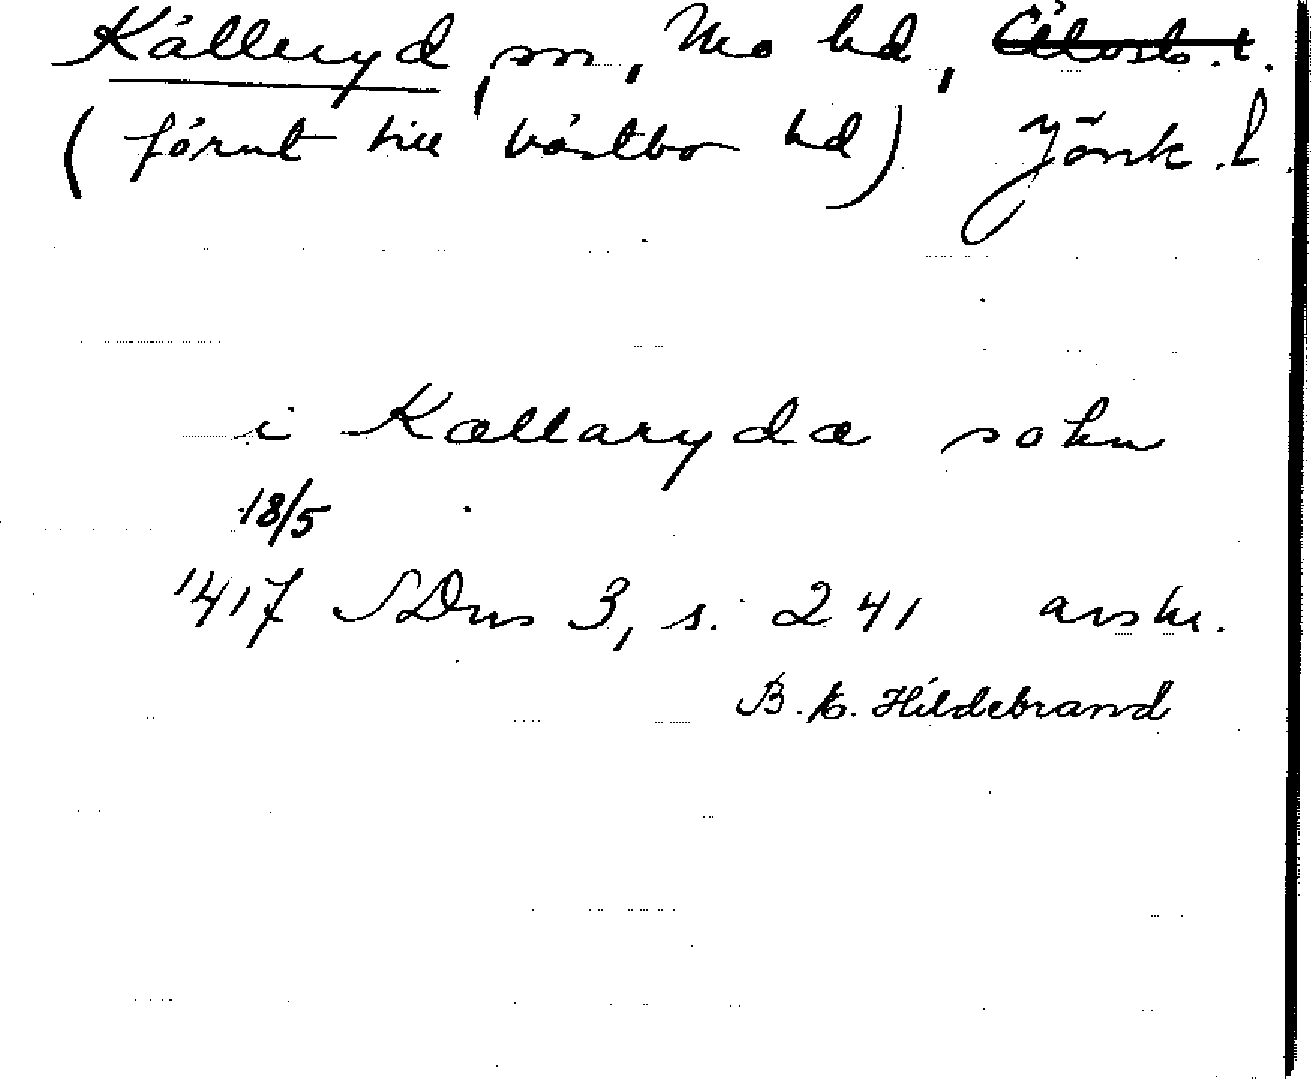 Källeryd, sn, Mo hd, Älvsb. l.
(förut till Västbo hd) Jönk. l.
i Kællarydæ sokn
18/5
1417 SDns 3, s. 241 avskr.
B. E. Hildebrand